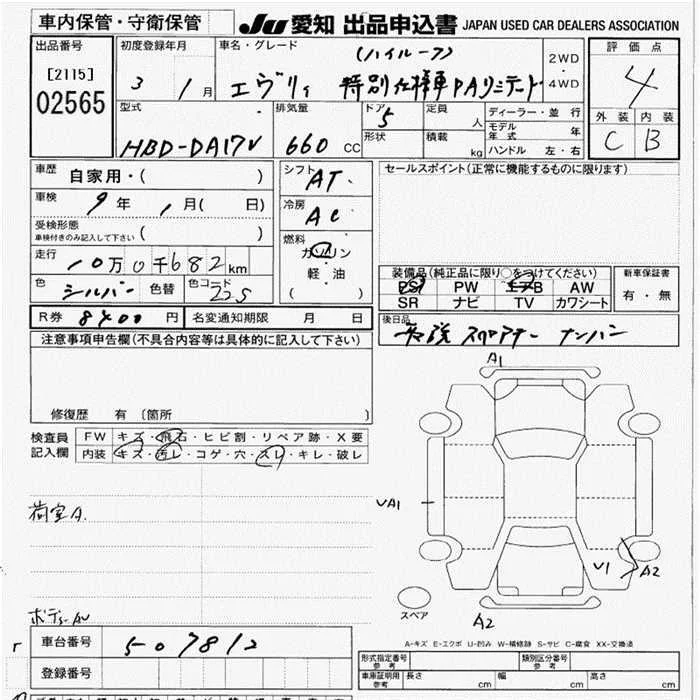 車内保管・守衛保管
JU 愛知 出品申込書 JAPAN USED CAR DEALERS ASSOCIATION
出品番号 [2115] 02565
初度登録年月 3 / 1月
車名・グレード (ハイルーフ)
エブリィ 特別仕様車PAリミテッド
2WD・4WD
評価点 4
外装 内装
C B
型式 HBD-DA17V
排気量 660 CC
ドア 5
形状
定員 人
積載 kg
ディーラー・並行
モデル年式 年
ハンドル 左・右
車歴 自家用・( )
車検 9年 1月( 日)
受検形態
車検付きのみ記入して下さい ( )
走行 10万0千682km
色 シルバー 色替 色コード Z2S
シフト AT
冷房 AC
燃料 ガソリン
軽・油
( )
セールスポイント(正常に機能するものに限ります)
装備品(純正品に限り○をつけてください)
PS PW エアB AW
SR ナビ TV カワシート
新車保証書
有・無
R券 8400円 名変通知期限 月 日
後日品
取説 スペアキー ナンバン
注意事項申告欄(不具合内容等は具体的に記入して下さい)
修復歴 有 〔箇所 〕
検査員記入欄
FW キズ・飛石・ヒビ割・リペア跡・X要
内装 キズ・汚レ・コゲ・穴・スレ・キレ・破レ
荷室A
ボディーAU
A1
UA1
U1
A2
スペア
A2
A-キズ E-エクボ U-凹み W-補修跡 S-サビ C-腐食 XX-交換済
車台番号 507812
登録番号
形式指定番号 参考
類別区分番号 参考
車庫証明用 参考 長さ cm 幅 cm 高さ cm